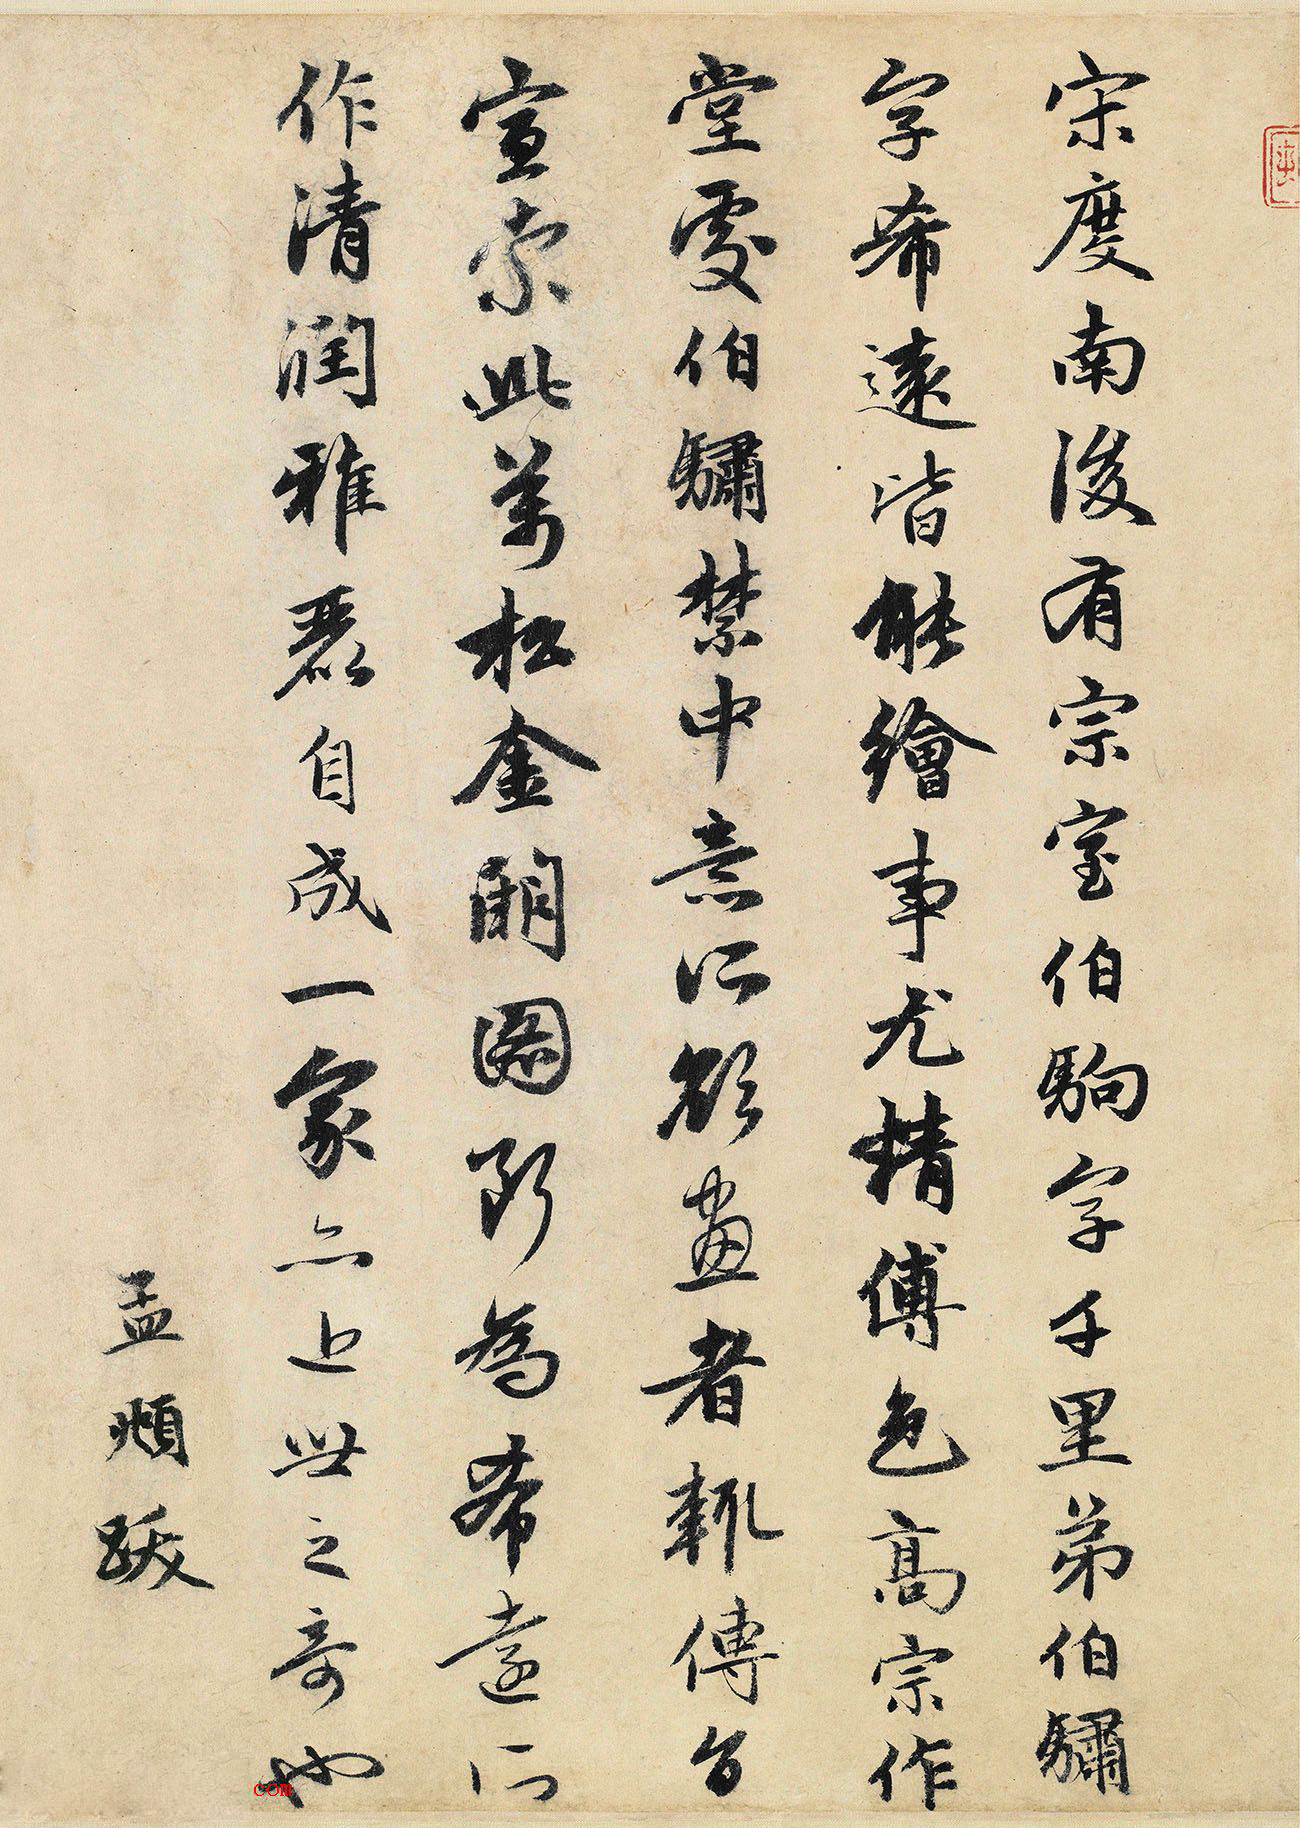 宋度南後有宗室伯駒字千里弟伯驌
字希遠皆能繪事尤精傅色高宗作
堂處伯驌禁中意所欲畫者輒傳旨
宣索此萬松金闕圖斷為希遠所
作清潤雅麗自成一家亦近世之奇也
孟頫跋
com